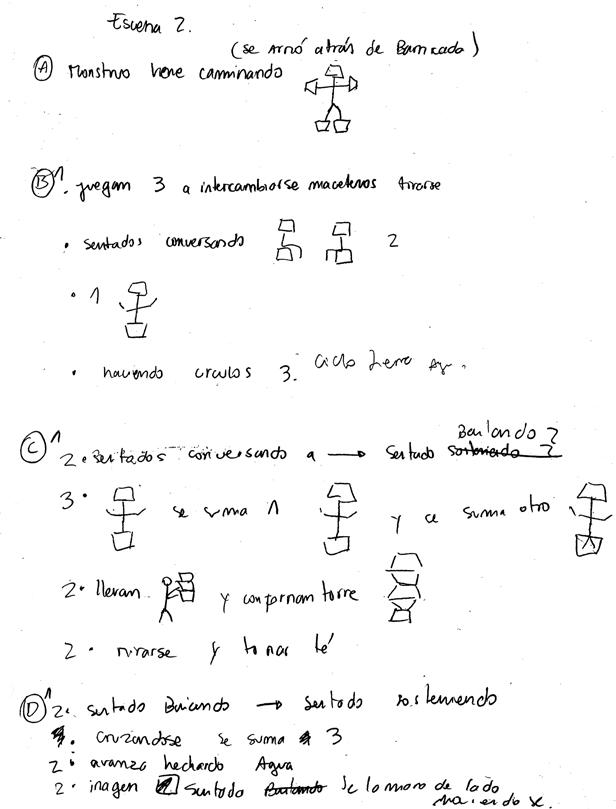 Escena 2.
(se Armó atrás de Barricada)
Ⓐ Monstruo viene caminando
Ⓑ 1. juegan 3 a intercambiarse maceteros tirarse
• sentados conversando 2
• 1
• haciendo circulos 3. Ciclo
Ⓒ 1 Bailando ?
2 • Sentados conversando a → Sentado ?
3 • se suma 1 y se suma otro
2 • llevan y conforman torre
2 • mirarse y tomar té
Ⓓ 1 2 • sentado → sentado sosteniendo
• cruzandose se suma 3
2 • avanza hechando Agua
2 • imagen sentado Bailando de lado haciendo x.